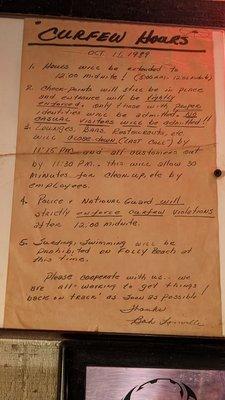 "CURFEW HOURS"
OCT. 11, 1989
1. HOURS WILL BE EXTENDED TO
12:00 MIDNITE! (5:00AM - 12:00 MIDNITE)
2. CHECK-POINTS WILL STILL BE IN PLACE
AND ENTRANCE WILL BE RIGIDLY
ENFORCED. ONLY THOSE WITH PROPER
IDENTITIES WILL BE ADMITTED. NO
CASUAL VISITORS WILL BE ADMITTED!!
LOUNGES, BARS, RESTAURANTS, ETC.
WILL CLOSE-DOWN (LAST CALL) BY
11:15 P.M. AND ALL CUSTOMERS OUT
BY 11:30 P.M. THIS WILL ALLOW 30
MINUTES FOR CLEAN-UP, ETC BY
EMPLOYEES.
4. POLICE & NATIONAL GUARD WILL
STRICTLY ENFORCE CURFEW VIOLATIONS
AFTER 12:00 MIDNITE.
5. SURFING, SWIMMING WILL BE
PROHIBITED ON FOLLY BEACH AT
THIS TIME.
PLEASE COOPERATE WITH US - WE
ARE ALL WORKING TO GET THINGS
BACK ON TRACK AS SOON AS POSSIBLE!
Thanks
Bob